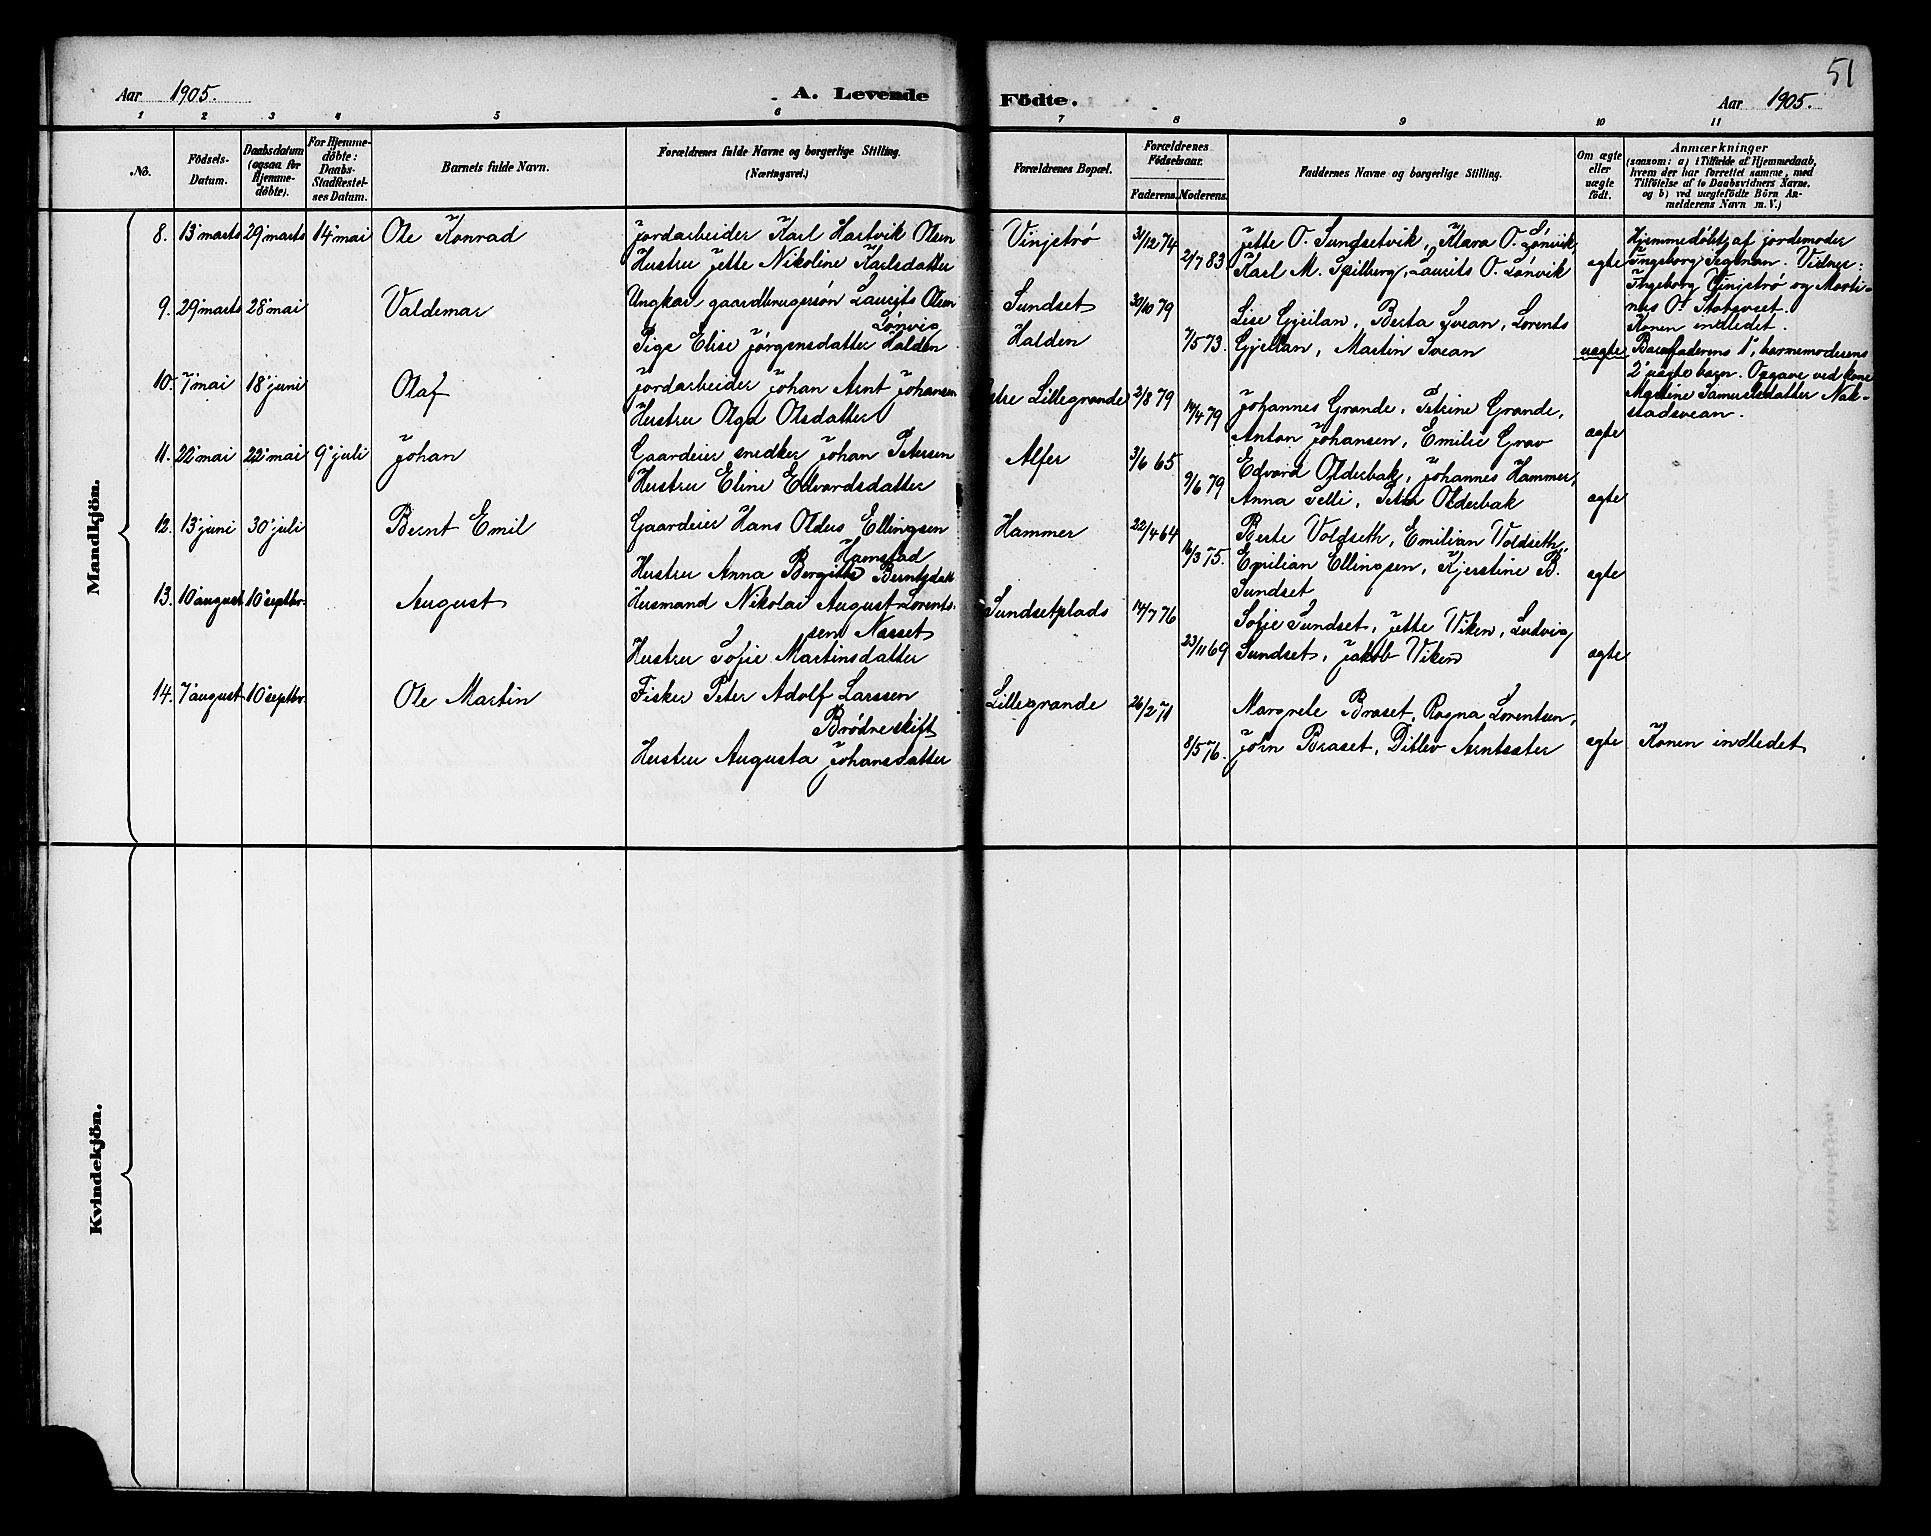 51
Aar 1905. A. Levende Födte. Aar 1905.
1 2 3 4 5 6 7 8 9 10 11
No. Födsels-Datum. Daabsdatum (ogsaa for Hjemme-döbte). For Hjemme-döbte: Daabs-Stadfestel-ses Datum. Barnets fulde Navn. Forældrenes fulde Navne og borgerlige Stilling. (Næringsvei.) Forældrenes Bopæl. Forældrenes Födselsaar. Faderens. Moderens. Faddernes Navne og borgerlige Stilling. Om ægte eller uægte födt. Anmærkninger (saasom: a) i Tilfælde af Hjemmedaab, hvem der har forrettet samme, med Tilföielse af to Daabsvidners Navne, og b) ved uægtefödte Börn An-melderens Navn m. V.)
Mandkjön.
8. 13' marts 29' marts 14' mai Ole Konrad Jordarbeider Karl Hartvik Olsen Vinjströ 31/12 74 Jette O. Sundsetvik, Klara O. Lönvik, Hjemmedöbt af jordemoder
Hustru Jette Nikoline Karlsdatter 2/7 83 Karl M. Spilberg, Laurits O. Lönvik ægte Ingeborg Segman. Vidner:
Ingeborg Vinjströ og Marti-
nus O. Stokovset.
Konen indledet.
9. 29' marts 28' mai Valdemar Ungkar gaardbrugersön Laurits Olsen Sundset 30/10 79 Lise Gjeilan, Berta Svean, Lorents
Lönvig
Pige Elise Jörgensdatter Halden Halden 7/5 73. Gjeilan, Martin Svean uægte Barnfaderens 1', barnemoderens
2' uægte barn. Opgave ved kone
10. 7' mai 18' juni Olaf Jordarbeider Johan Arnt Johansen Lillegrande 2/8 79 Johannes Grande, Petrine Grande, Samuelsdatter Nak-
Hustru Olga Olsdatter 14/4 79 Anton Johansen, Emilie Grav ægte stadsvean.
11. 22' mai 22' mai 9' juli Johan Gaardeier snedker Johan Petersen Alfer 3/6 65 Edvard Olderbak, Johannes Hammer,
Hustru Eline Edvardsdatter 9/6 79 Anna Selli, Peter Olderbak ægte
12. 13' juni 30' juli Bernt Emil Gaardeier Hans Oldus Ellingsen Hammer 22/4 64 Berte Voldseth, Emilian Voldseth,
Hamstad
Hustru Anna Bergitte Berntsdatt 16/3 75. Emilian Ellingsen, Kjerstine B. ægte
Sundset
13. 10' august 10' septbr. August Husmand Nikolai August Lorents- Sundsetplads 14/7 76 Sofie Sundset, Jette Viken, Ludvig
sen Næsset
Hustru Sofie Martinsdatter 23/11 69 Sundset, Jakob Viken ægte
14. 7' august 10' septbr. Ole Martin Fisker Peter Adolf Larssen Lillegrande 26/2 71 Margrete Braset, Ragna Lorentsen,
Brödreskift
Hustru Augusta Johansdatter 8/5 76. Jörn Braset, Ditlev Arntsæter ægte Konen indledet
Kvindekjön.